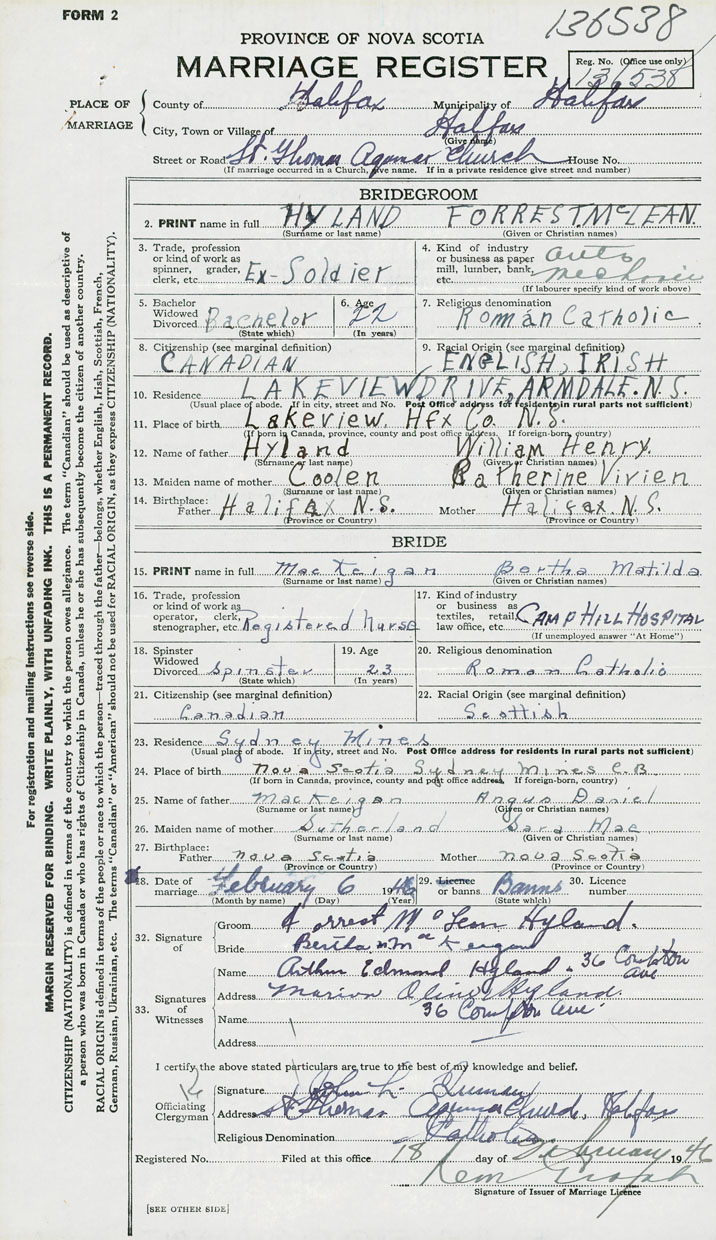 FORM 2
136538
PROVINCE OF NOVA SCOTIA
MARRIAGE REGISTER
Reg. No. (Office use only)
136538
PLACE OF MARRIAGE
County of Halifax Municipality of Halifax
City, Town or Village of Halifax
(Give name)
Street or Road St. Thomas Aquinas Church House No.
(If marriage occurred in a Church, give name. If in a private residence give street and number)
BRIDEGROOM
2. PRINT name in full HYLAND FORREST.McLEAN.
(Surname or last name) (Given or Christian names)
3. Trade, profession or kind of work as spinner, grader, clerk, etc. Ex-Soldier
4. Kind of industry or business as paper mill, lumber, bank, etc. Auto Mechanic
(If labourer specify kind of work above)
5. Bachelor Widowed Divorced Bachelor
(State which)
6. Age 22
(In years)
7. Religious denomination
Roman Catholic
8. Citizenship (see marginal definition)
CANADIAN
9. Racial Origin (see marginal definition)
ENGLISH, IRISH
10. Residence LAKEVIEW DRIVE, ARMDALE. N.S.
(Usual place of abode. If in city, street and No. Post Office address for residents in rural parts not sufficient)
11. Place of birth Lakeview. Hfx Co. N.S.
(If born in Canada, province, county and post office address. If foreign-born, country)
12. Name of father Hyland William Henry.
(Surname or last name) (Given or Christian names)
13. Maiden name of mother Coolen Catherine Vivien
(Surname or last name) (Given or Christian names)
14. Birthplace: Father Halifax N.S. Mother Halifax. N.S.
(Province or Country) (Province or Country)
BRIDE
15. PRINT name in full MacKeigan Bertha Matilda
(Surname or last name) (Given or Christian names)
16. Trade, profession or kind of work as operator, clerk, stenographer, etc. Registered Nurse
17. Kind of industry or business as textiles, retail, law office, etc. CAMP HILL HOSPITAL
(If unemployed answer "At Home")
18. Spinster Widowed Divorced Spinster
(State which)
19. Age 23
(In years)
20. Religious denomination
Roman Catholic
21. Citizenship (see marginal definition)
Canadian
22. Racial Origin (see marginal definition)
Scottish
23. Residence Sydney Mines
(Usual place of abode. If in city, street and No. Post Office address for residents in rural parts not sufficient)
24. Place of birth Nova Scotia Sydney Mines C.B.
(If born in Canada, province, county and post office address. If foreign-born, country)
25. Name of father MacKeigan Angus Daniel
(Surname or last name) (Given or Christian names)
26. Maiden name of mother Sutherland Sara Mae
(Surname or last name) (Given or Christian names)
27. Birthplace: Father Nova Scotia Mother Nova Scotia
(Province or Country) (Province or Country)
28. Date of marriage February 6 1946 29. Licence or banns Banns 30. Licence number
(Month by name) (Day) (Year) (State which)
32. Signature of
Groom Forrest McLean Hyland.
Bride Bertha M MacKeigan
33. Signatures of Witnesses
Name Arthur Edmond Hyland - 36 Compton Ave
Address Marion Olive Hyland.
Name 36 Compton Ave.
Address
I certify the above stated particulars are true to the best of my knowledge and belief.
Officiating Clergyman
Signature John L.
Address St Thomas Aquinas Church, Halifax
Religious Denomination Catholic
Registered No. Filed at this office 18 day of February 1946
Signature of Issuer of Marriage Licence
[SEE OTHER SIDE]
For registration and mailing instructions see reverse side.
MARGIN RESERVED FOR BINDING. WRITE PLAINLY, WITH UNFADING INK. THIS IS A PERMANENT RECORD.
CITIZENSHIP (NATIONALITY) is defined in terms of the country to which the person owes allegiance. The term "Canadian" should be used as descriptive of
a person who was born in Canada or who has rights of Citizenship in Canada, unless he or she has subsequently become the citizen of another country.
RACIAL ORIGIN is defined in terms of the people or race to which the person—traced through the father—belongs, whether English, Irish, Scottish, French,
German, Russian, Ukrainian, etc. The terms "Canadian" or "American" should not be used for RACIAL ORIGIN, as they express CITIZENSHIP (NATIONALITY).